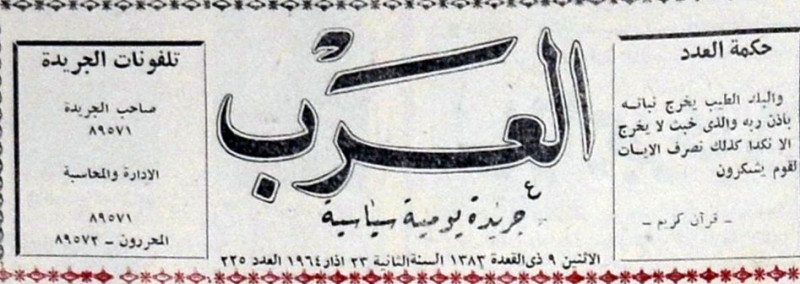 حكمة العدد
والبلد الطيب يخرج نباته
باذن ربه والذى خبث لا يخرج
الا نكدا كذلك نصرف الايات
لقوم يشكرون
- قرآن كريم -
العرب
جريدة يومية سياسية
الاثنين ٩ ذى القعدة ١٣٨٣ السنة الثانية ٢٣ اذار ١٩٦٤ العدد ٢٢٥
تلفونات الجريدة
صاحب الجريدة
٨٩٥٧١
الادارة والمحاسبة
٨٩٥٧١
المحررون - ٨٩٥٧٢